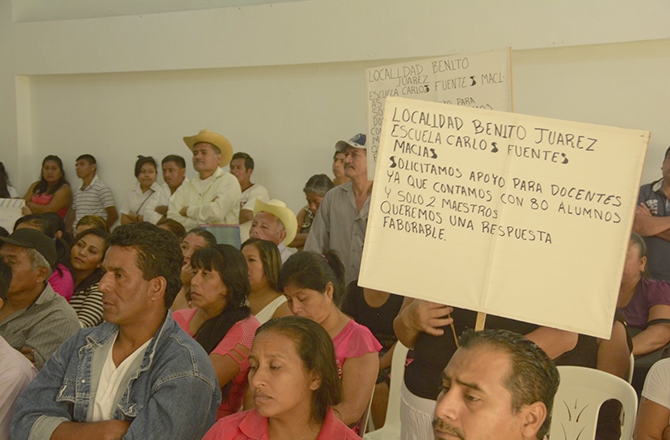 LOCALIDAD BENITO
JUAREZ
ESCUELA CARLOS FUENTES MACI-
AS
PARA
LOCALIDAD BENITO JUAREZ
ESCUELA CARLOS FUENTES
MACIAS
SOLICITAMOS APOYO PARA DOCENTES
YA QUE CONTAMOS CON 80 ALUMNOS
Y SOLO 2 MAESTROS
QUEREMOS UNA RESPUESTA
FABORABLE.